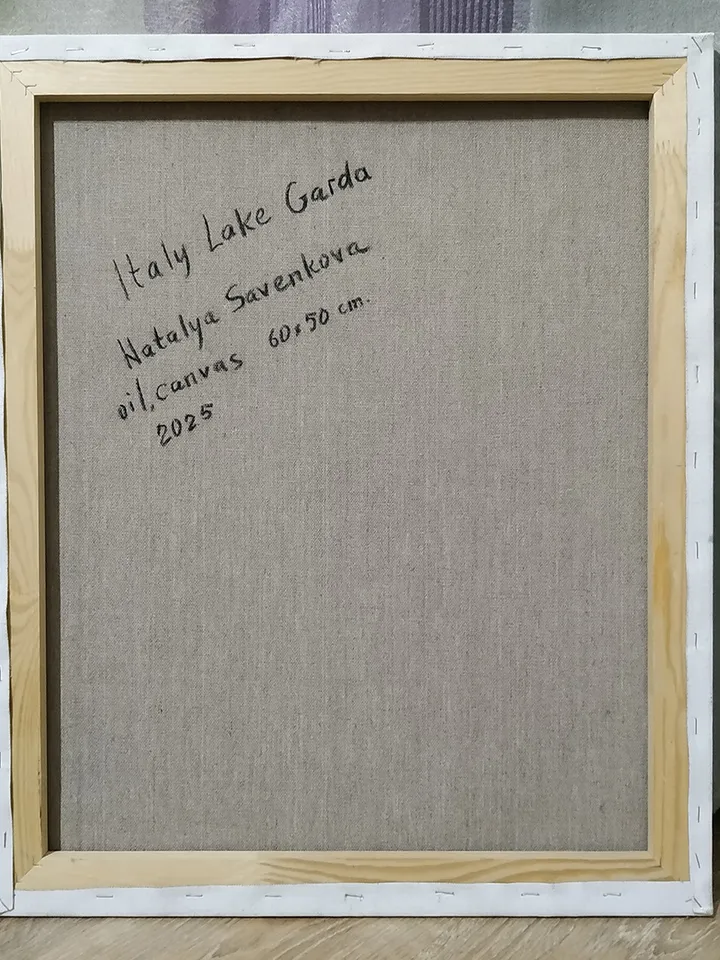 Italy Lake Garda
Natalya Savenkova
oil, canvas 60x50 cm.
2025